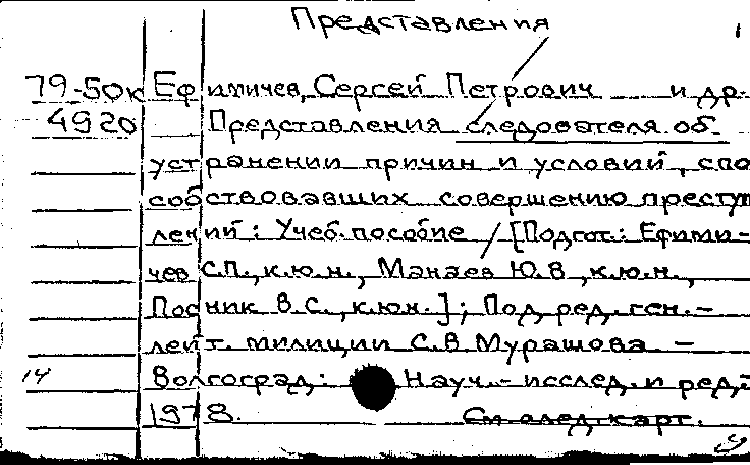 Представления
79-50к Ефимичев, Сергей Петрович и др.
4920 Представления следователя об
устранении причин и условий, спо
собствовавших совершению преступ
лений: Учеб. пособие / [Подгот.: Ефими-
чев С.П., к.ю.н., Манаев Ю.В, к.ю.н.,
Посник В.С., к.ю.н.]; Под ред. ген.-
лейт. милиции С.В. Мурашова -
14 Волгоград: Науч.-исслед. и ред.-
1978. См след. карт.